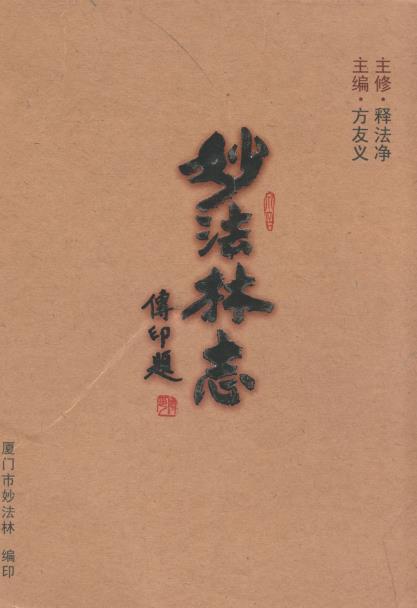 主修·释法净
主编·方友义
妙法林志
傳印题
厦门市妙法林 编印